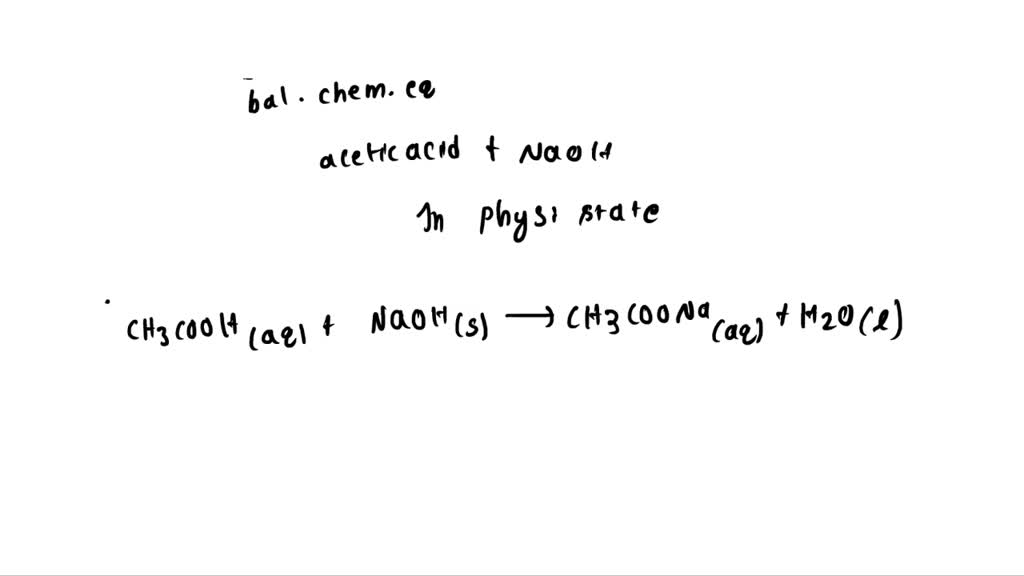 bal. chem. eq
acetic acid + NaOH
In physi state
CH3COOH (aq) + NaOH (s) → CH3COONa (aq) + H2O (l)